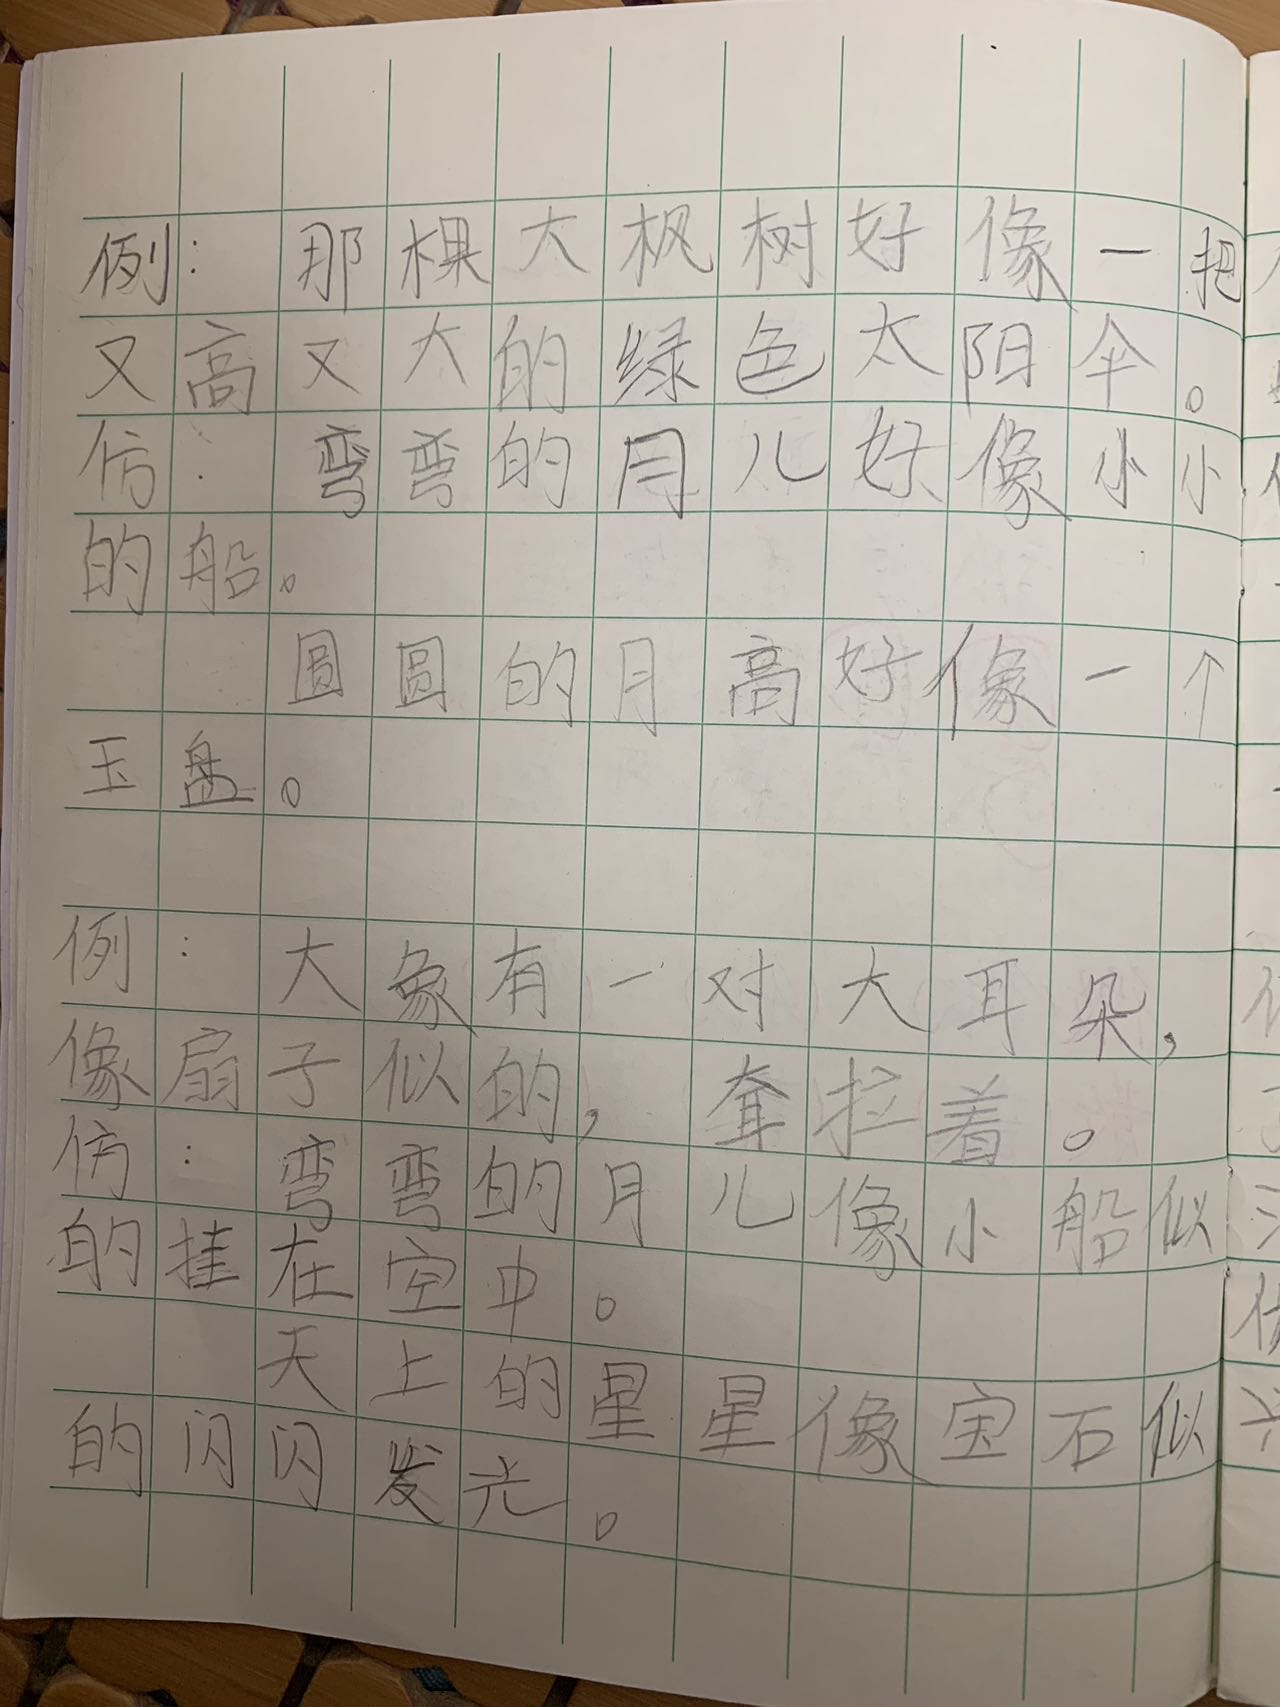 例：那棵大枫树好像一把
又高又大的绿色太阳伞。
仿：弯弯的月儿好像小小
的船。
圆圆的月高好像一个
玉盘。
例：大象有一对大耳朵，
像扇子似的，耷拉着。
仿：弯弯的月儿像小船似
的挂在空中。
天上的星星像宝石似
的闪闪发光。